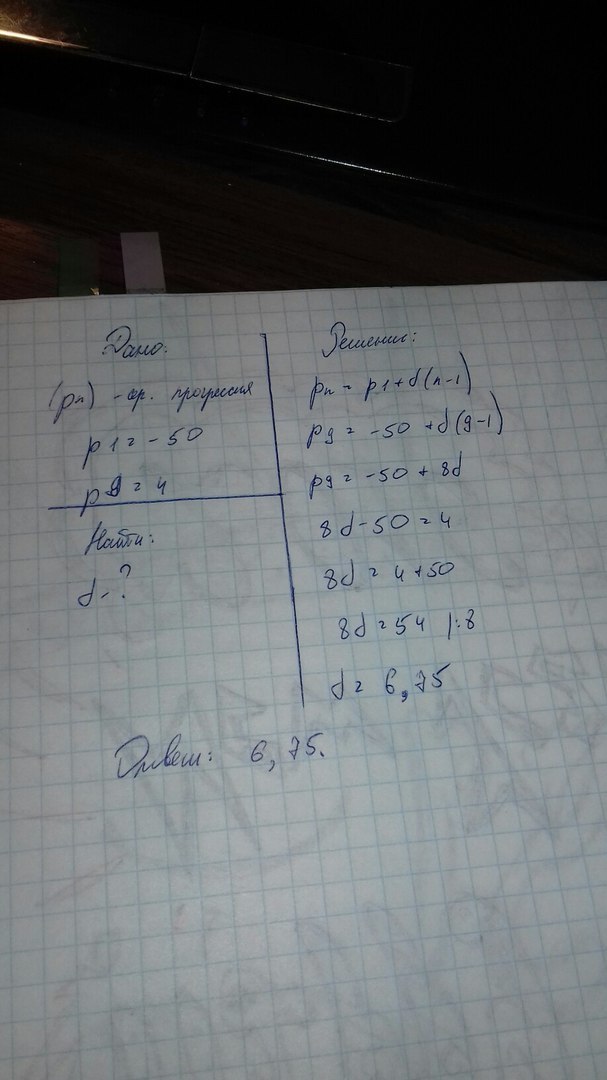 Дано:
(pn) - ар. прогрессия
p1 = -50
p9 = 4
Найти:
d - ?
Решение:
pn = p1 + d(n-1)
p9 = -50 + d(9-1)
p9 = -50 + 8d
8d - 50 = 4
8d = 4 + 50
8d = 54 |:8
d = 6,75
Ответ: 6,75.